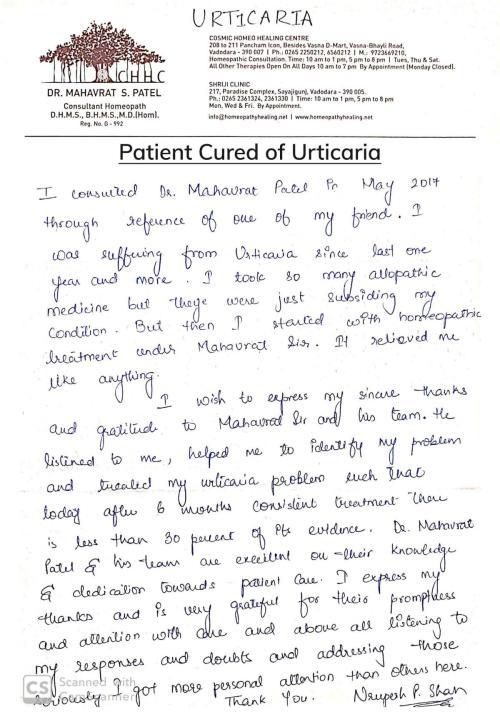 URTICARIA
CHHC
DR. MAHAVRAT S. PATEL
Consultant Homeopath
D.H.M.S., B.H.M.S.,M.D.(Hom).
Reg. No. G - 992
COSMIC HOMEO HEALING CENTRE
208 to 211 Pancham Icon, Besides Vasna D-Mart, Vasna-Bhayli Road,
Vadodara - 390 007 | Ph.: 0265 2250212, 6560212 | M.: 9723669210,
Homeopathic Consultation. Time: 10 am to 1 pm, 5 pm to 8 pm | Tues, Thu & Sat.
All Other Therapies Open On All Days 10 am to 7 pm By Appointment (Monday Closed).
SHRIJI CLINIC
217, Paradise Complex, Sayajigunj, Vadodara - 390 005.
Ph.: 0265 2361324, 2361330 | Time: 10 am to 1 pm, 5 pm to 8 pm
Mon, Wed & Fri. By Appointment.
info@homeopathyhealing.net | www.homeopathyhealing.net
Patient Cured of Urticaria
I consulted Dr. Mahavrat Patel in May 2017
through reference of one of my friend. I
was suffering from Urticaria since last one
year and more. I took so many allopathic
medicine but they were just subsiding my
condition. But then I started with homeopathic
treatment under Mahavrat Sir. It relieved me
like anything.
I wish to express my sincere thanks
and gratitude to Mahavrat Sir and his team. He
listened to me, helped me to identify my problem
and treated my urticaria problem such that
today after 6 months consistent treatment there
is less than 30 percent of its evidence. Dr. Mahavrat
Patel & his team are excellent on their knowledge
& dedication towards patient care. I express my
thanks and is very grateful for their promptness
and attention with care and above all listening to
my responses and doubts and addressing those
seriously I got more personal attention than others here.
Thank You. Nrupesh P. Shah
CS Scanned with
CamScanner